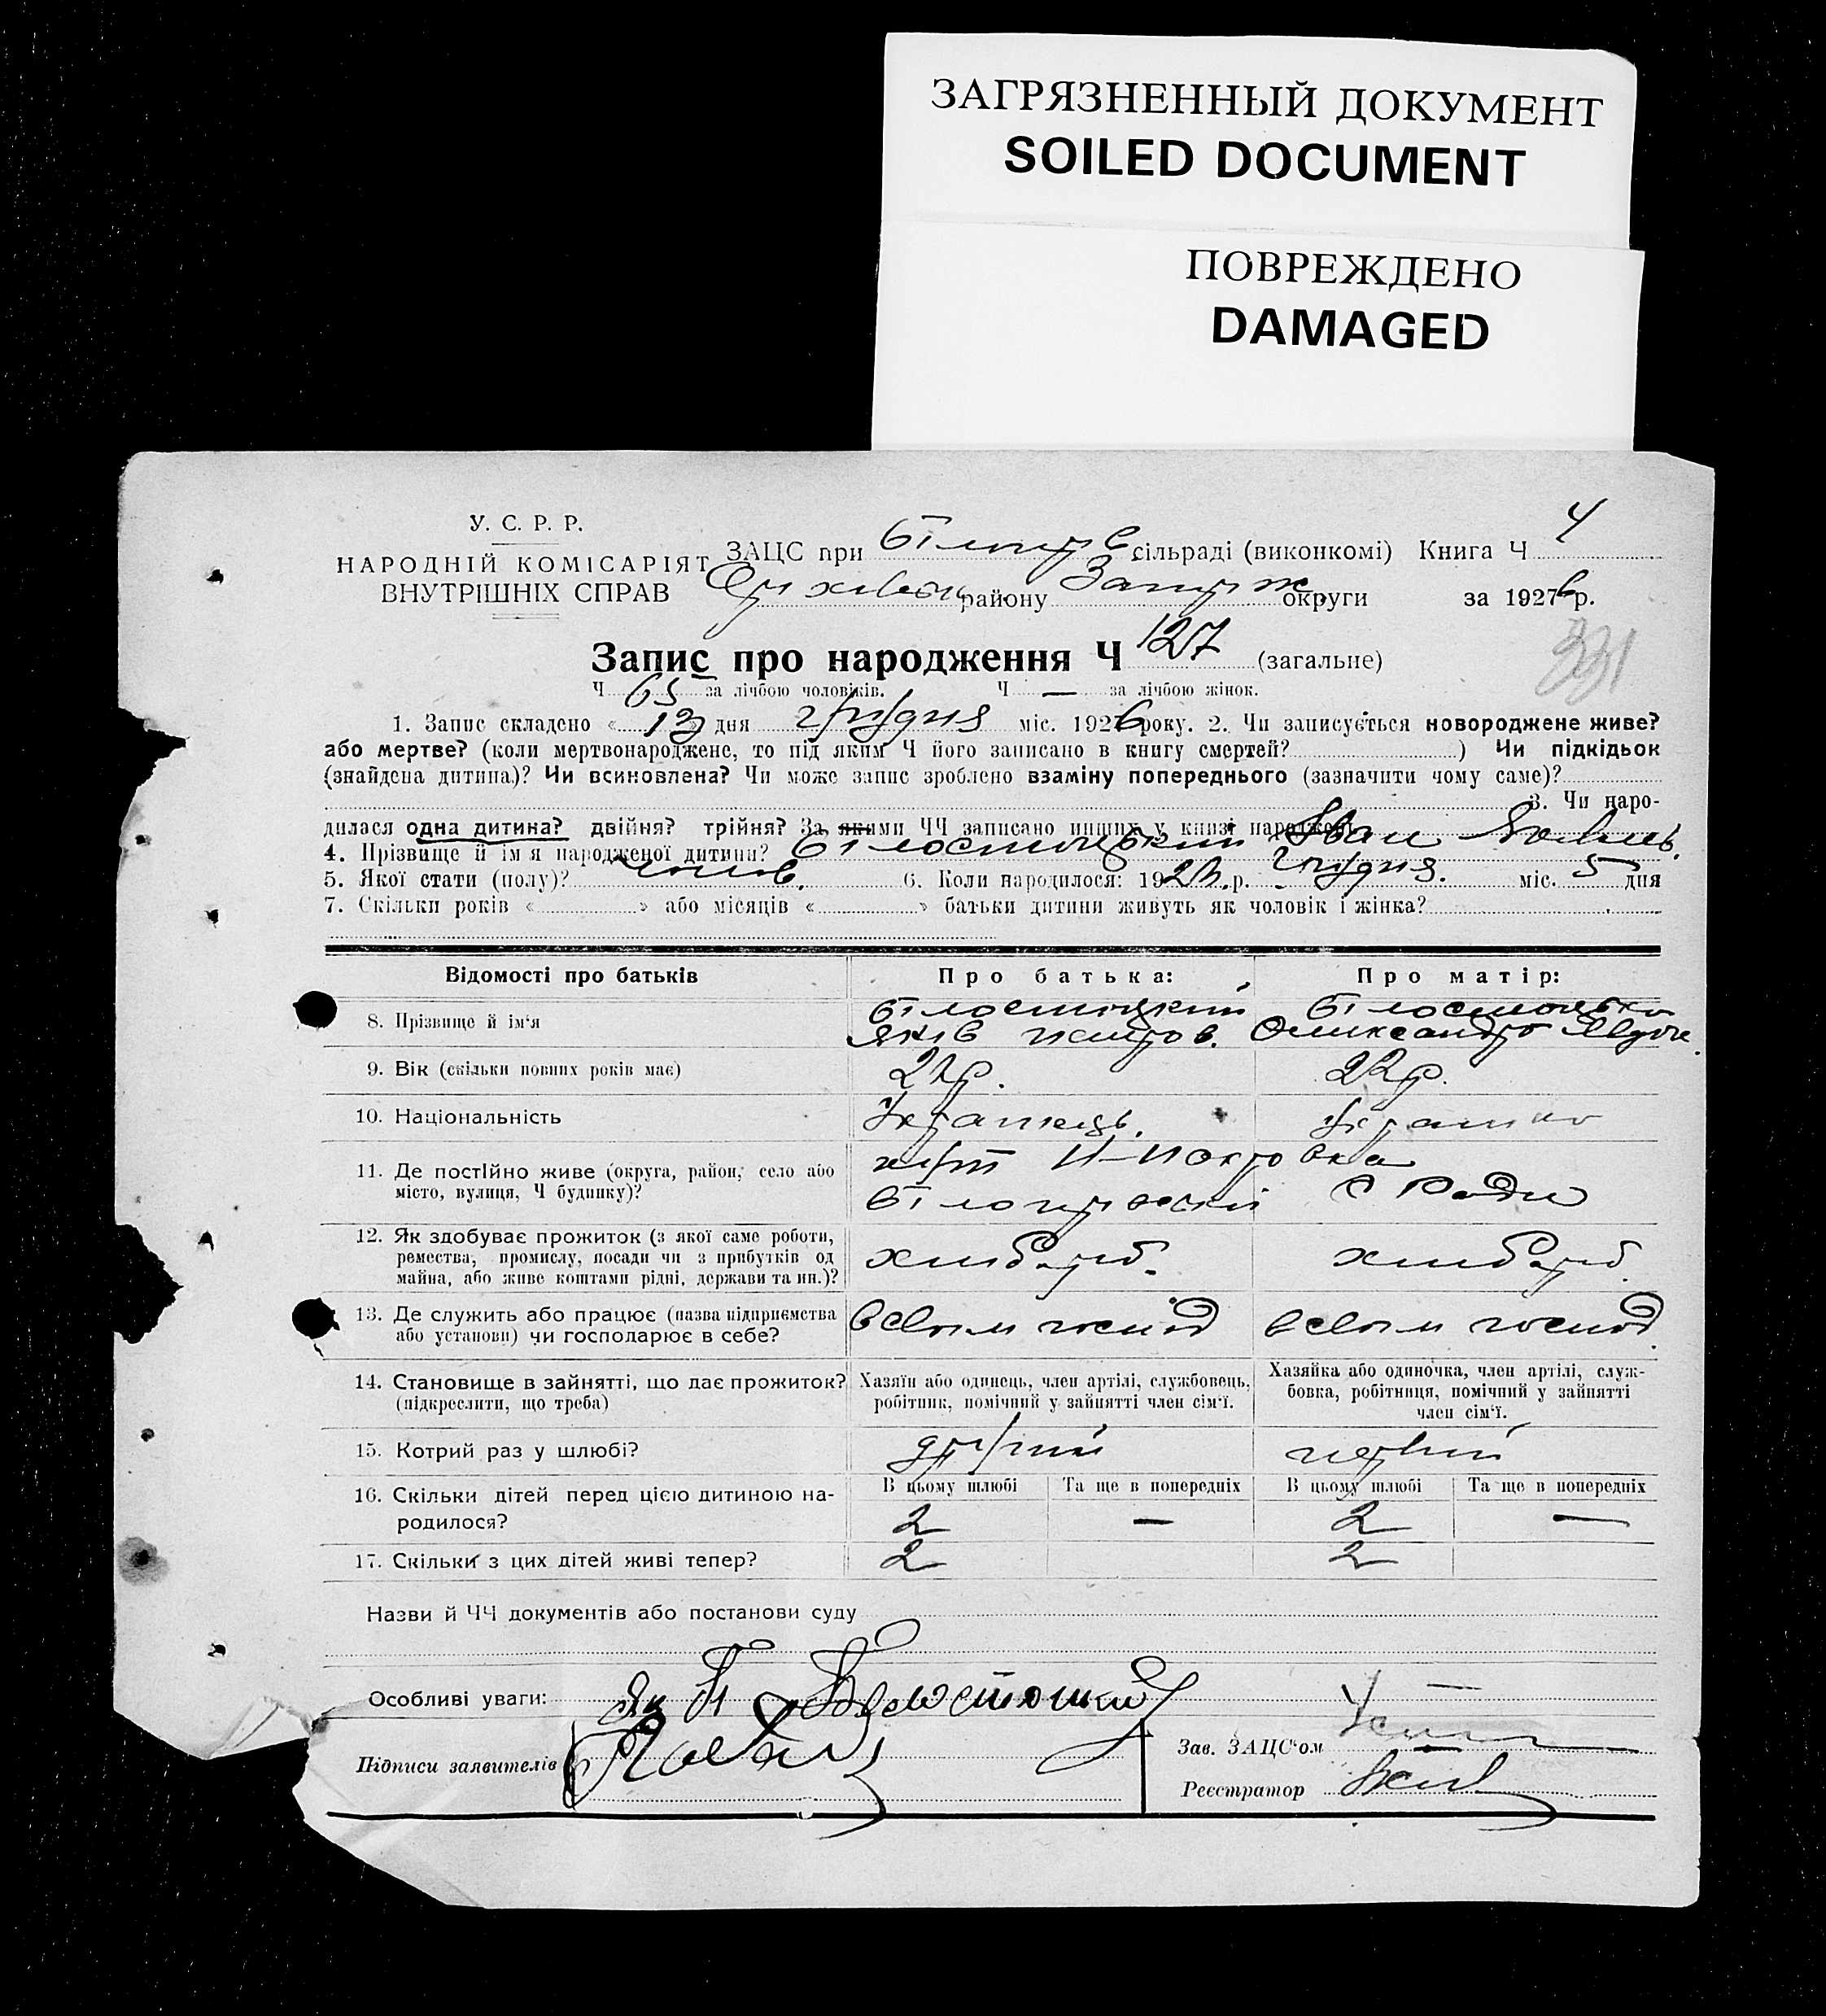 ЗАГРЯЗНЕННЫЙ ДОКУМЕНТ
SOILED DOCUMENT
ПОВРЕЖДЕНО
DAMAGED
У. С. Р. Р.
НАРОДНІЙ КОМІСАРІЯТ
ВНУТРІШНІХ СПРАВ
ЗАЦС при сільраді (виконкомі) Книга Ч 4
району Запріж округи за 1926 р.
331
Запис про народження Ч 127 (загальне)
Ч 65 за лічбою чоловіків. Ч — за лічбою жінок.
1. Запис складено « 13 » дня грудня міс. 1926 року. 2. Чи записується новороджене живе?
або мертве? (коли мертвонароджене, то під яким Ч його записано в книгу смертей? ) Чи підкідьок
(знайдена дитина)? Чи всиновлена? Чи може запис зроблено взаміну попереднього (зазначити чому саме)?
3. Чи наро-
дилася одна дитина? двійня? трійня? За якими ЧЧ записано инших у книзі народжень
4. Прізвище й ім'я народженої дитини? Білостоцький Іван Яковць.
5. Якої стати (полу)? чолов. 6. Коли народилося: 192 р. грудня. міс. 5 дня
7. Скільки років « » або місяців « » батьки дитини живуть як чоловік і жінка?
Відомості про батьків
Про батька:
Про матір:
8. Прізвище й ім'я
Білостоцкий
Яків петров.
Білостоцька
Олександра
9. Вік (скільки повних років має)
22р.
10. Національність
Українець.
Українка
11. Де постійно живе (округа, район, село або
місто, вулиця, Ч будинку)?
хут Н-Покровка
С Ради
12. Як здобуває прожиток (з якої саме роботи,
ремества, промислу, посади чи з прибутків од
майна, або живе коштами рідні, держави та ин.)?
хлибороб.
хлибороб.
13. Де служить або працює (назва підприємства
або установи) чи господарює в себе?
всвоем господ
всвоем господ.
14. Становище в зайнятті, що дає прожиток?
(підкреслити, що треба)
Хазяїн або одинець, член артілі, службовець,
робітник, помічний у зайнятті член сім'ї.
Хазяйка або одиночка, член артілі, служ-
бовка, робітниця, помічний у зайнятті
член сім'ї.
15. Котрий раз у шлюбі?
другий
первий
16. Скільки дітей перед цією дитиною на-
родилося?
В цьому шлюбі
Та ще в попередніх
В цьому шлюбі
Та ще в попередніх
2 — 2 —
17. Скільки з цих дітей живі тепер?
2 2
Назви й ЧЧ документів або постанови суду
Особливі уваги:
Підписи заявителів
Зав. ЗАЦС'ом
Реєстратор